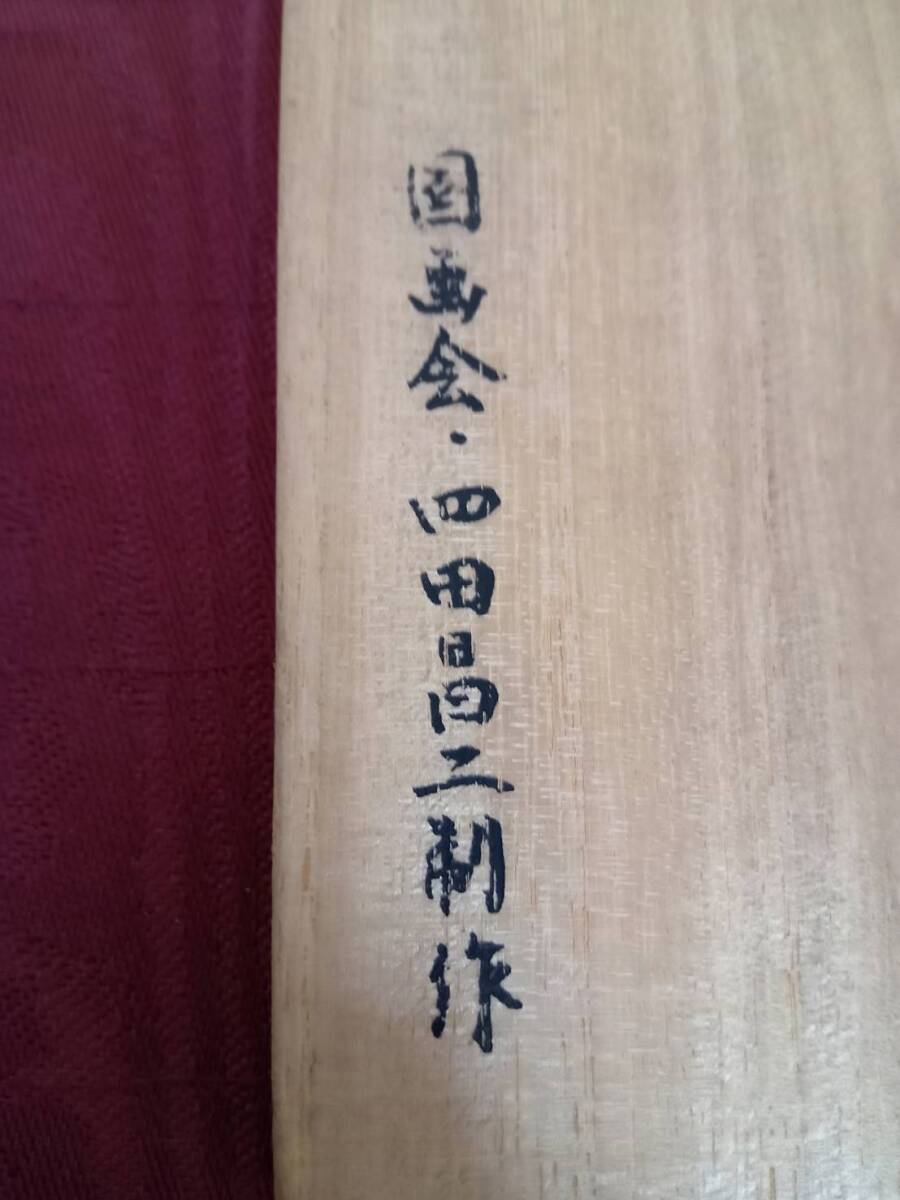 国画会・四田昌二制作